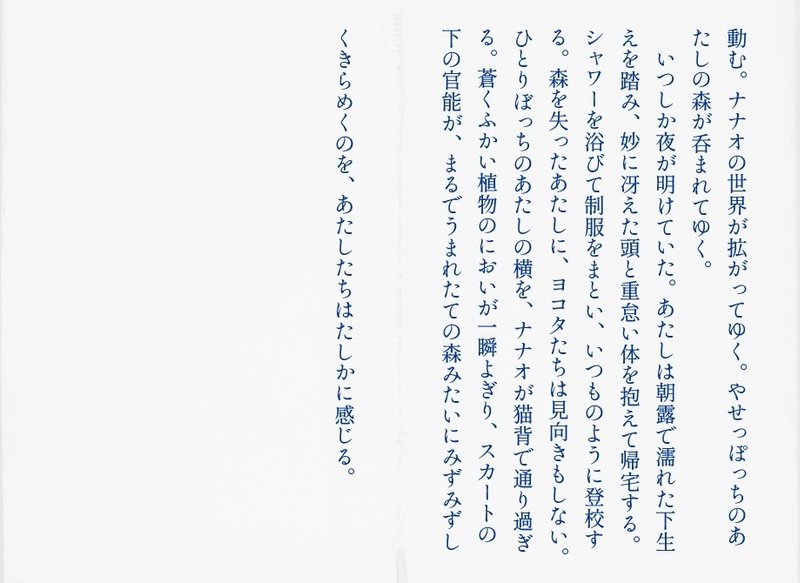 動む。ナナオの世界が拡がってゆく。やせっぽっちのあ
たしの森が呑まれてゆく。
いつしか夜が明けていた。あたしは朝露で濡れた下生
えを踏み、妙に冴えた頭と重怠い体を抱えて帰宅する。
シャワーを浴びて制服をまとい、いつものように登校す
る。森を失ったあたしに、ヨコタたちは見向きもしない。
ひとりぼっちのあたしの横を、ナナオが猫背で通り過ぎ
る。蒼くふかい植物のにおいが一瞬よぎり、スカートの
下の官能が、まるでうまれたての森みたいにみずみずし
くきらめくのを、あたしたちはたしかに感じる。